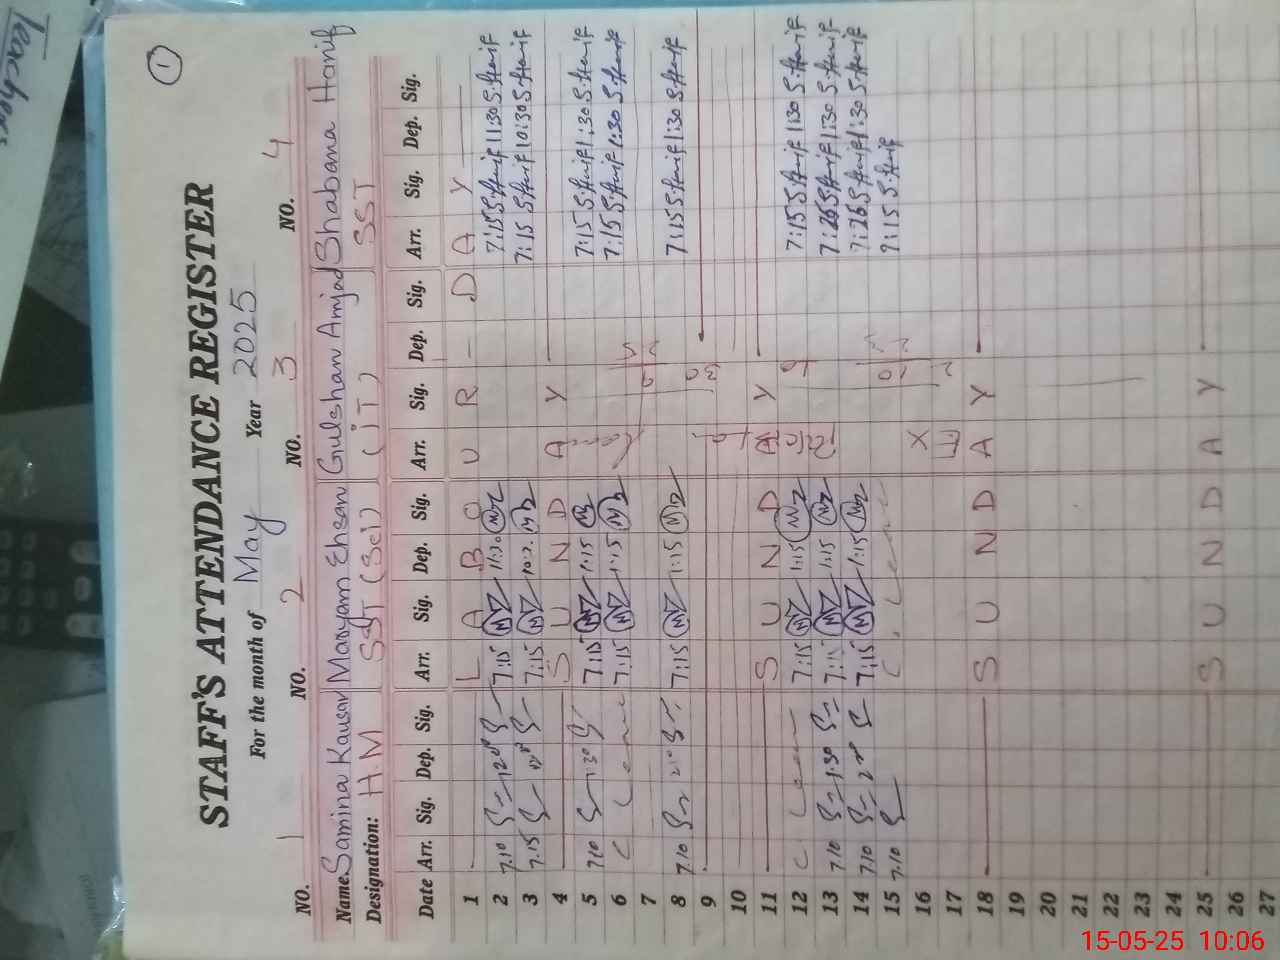 Teacher
1
STAFF'S ATTENDANCE REGISTER
For the month of May Year 2025
NO. 1 NO. 2 NO. 3 NO. 4
Name: Samina Kausar Maryam Ehsan Gulshan Amjad Shabana Hanif
Designation: H.M SST (Sci) (IT) SST
Date Arr. Sig. Dep. Sig. Arr. Sig. Dep. Sig. Arr. Sig. Dep. Sig. Arr. Sig. Dep. Sig.
1 L A B O U R D A Y
2 7:10 7:15 11:30 7:15 S.Hanif 11:30 S.Hanif
3 7:15 7:15 7:15 S.Hanif 10:30 S.Hanif
4 S U N D A Y
5 7:10 1:30 7:15 1:15 7:15 S.Hanif 1:30 S.Hanif
6 C Leave 7:15 1:15 7:15 S.Hanif 1:30 S.Hanif
7
8 7:10 7:15 1:15 7:15 S.Hanif 1:30 S.Hanif
9
10
11 S U N D A Y
12 C Leave 7:15 1:15 7:15 S.Hanif 1:30 S.Hanif
13 7:10 1:30 7:15 1:15 7:26 S.Hanif 1:30 S.Hanif
14 7:10 7:15 1:15 7:26 S.Hanif 1:30 S.Hanif
15 7:10 C Leave 7:15 S.Hanif
16
17
18 S U N D A Y
19
20
21
22
23
24
25 S U N D A Y
26
27
15-05-25 10:06